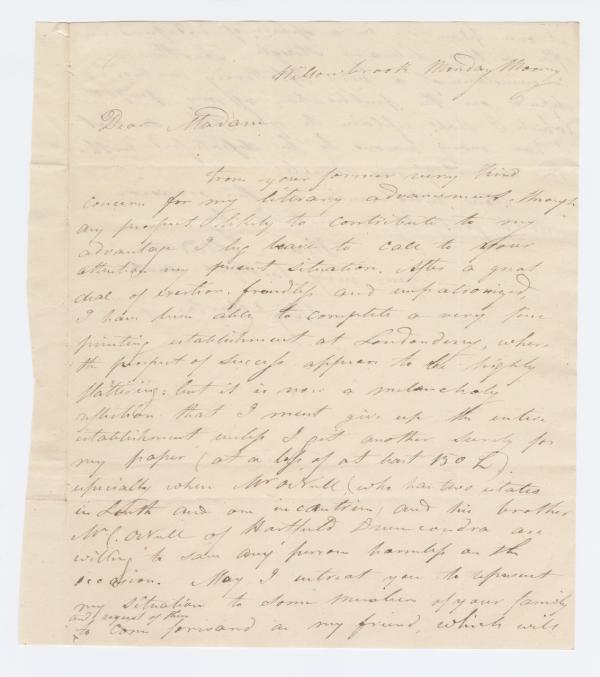 Willowbrook Monday Morng
Dear Madam
From your former very kind
concern for my literary advancement, through
any prospect likely to contribute to my
advantage I beg leave to call to your
attention my present situation. After a great
deal of exertion, friendless and unpatronized,
I have been able to complete a very fine
printing establishment at Londonderry, where
the prospect of success appears to be highly
flattering: but it is now a melancholy
reflection that I must give up the entire
establishment unless I get another surety for
my paper (at a loss of at least 150 L).
especially when Mr. O'Neill (who has two estates
in Louth and one in and his brother
Mr. C. O'Neill of Hartfield Drumcondra are
willing to save any person harmless on the
occasion. May I intreat you to represent
my situation to some member of your family
and request of them
to come forward as my friend, which will